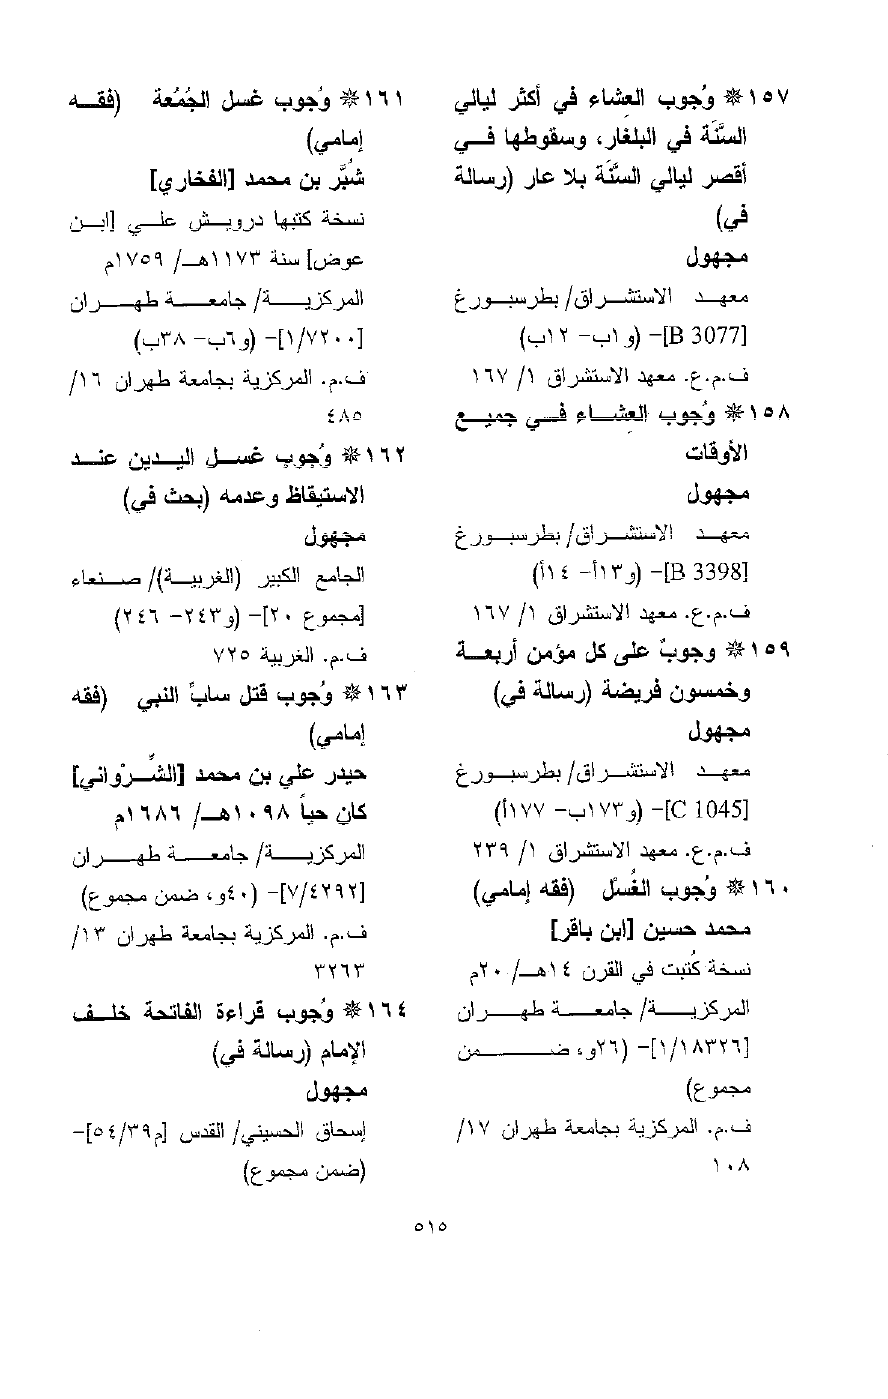 ١٥٧ ❋ وُجوب العِشاء في أكثر ليالي
السنَّة في البلغار، وسقوطها فـــي
أقصر ليالي السنَّة بلا عار (رسالة
في)
مجهول
معهـد الاستشـراق/ بطرسبـورغ
[B 3077]- (و١ب- ١٢ب)
ف.م.ع. معهد الاستشراق ١/ ١٦٧
١٥٨ ❋ وُجوب العِشـاء فـي جميـع
الأوقات
مجهول
معهـد الاستشـراق/ بطرسبـورغ
[B 3398]- (و١٣أ- ١٤أ)
ف.م.ع. معهد الاستشراق ١/ ١٦٧
١٥٩ ❋ وجوبٌ على كل مؤمن أربعـة
وخمسون فريضة (رسالة في)
مجهول
معهـد الاستشـراق/ بطرسبـورغ
[C 1045]- (و١٧٣ب- ١٧٧أ)
ف.م.ع. معهد الاستشراق ١/ ٢٣٩
١٦٠ ❋ وُجوب الغُسْل (فقه إمامي)
محمد حسين [ابن باقر]
نسخة كُتبت في القرن ١٤هـ/ ٢٠م
المركزيـــة/ جامعـــة طهـــران
[١/١٨٣٢٦]- (٢٦و، ضـــمن
مجموع)
ف.م. المركزية بجامعة طهران ١٧/
١٠٨
١٦١ ❋ وُجوب غسل الجُمُعة (فقـه
إمامي)
شُبَّر بن محمد [الفخاري]
نسخة كتبها درويـش علـي [ابـن
عوض] سنة ١١٧٣هـ/ ١٧٥٩م
المركزيـــة/ جامعـــة طهـــران
[١/٧٢٠٠]- (و٦ب- ٣٨ب)
ف.م. المركزية بجامعة طهران ١٦/
٤٨٥
١٦٢ ❋ وُجوب غسـل اليـدين عنـد
الاستيقاظ وعدمه (بحث في)
مجهول
الجامع الكبير (الغربيـة)/ صـنعاء
[مجموع ٢٠]- (و٢٤٣- ٢٤٦)
ف.م. الغربية ٧٢٥
١٦٣ ❋ وُجوب قتل سابّ النبي (فقه
إمامي)
حيدر علي بن محمد [الشِّرْواني]
كان حياً ١٠٩٨هـ/ ١٦٨٦م
المركزيـــة/ جامعـــة طهـــران
[٧/٤٢٩٢]- (٤٠و، ضمن مجموع)
ف.م. المركزية بجامعة طهران ١٣/
٣٢٦٣
١٦٤ ❋ وُجوب قراءة الفاتحة خلـف
الإمام (رسالة في)
مجهول
إسحاق الحسيني/ القدس [م٥٤/٣٩]-
(ضمن مجموع)
٥١٥